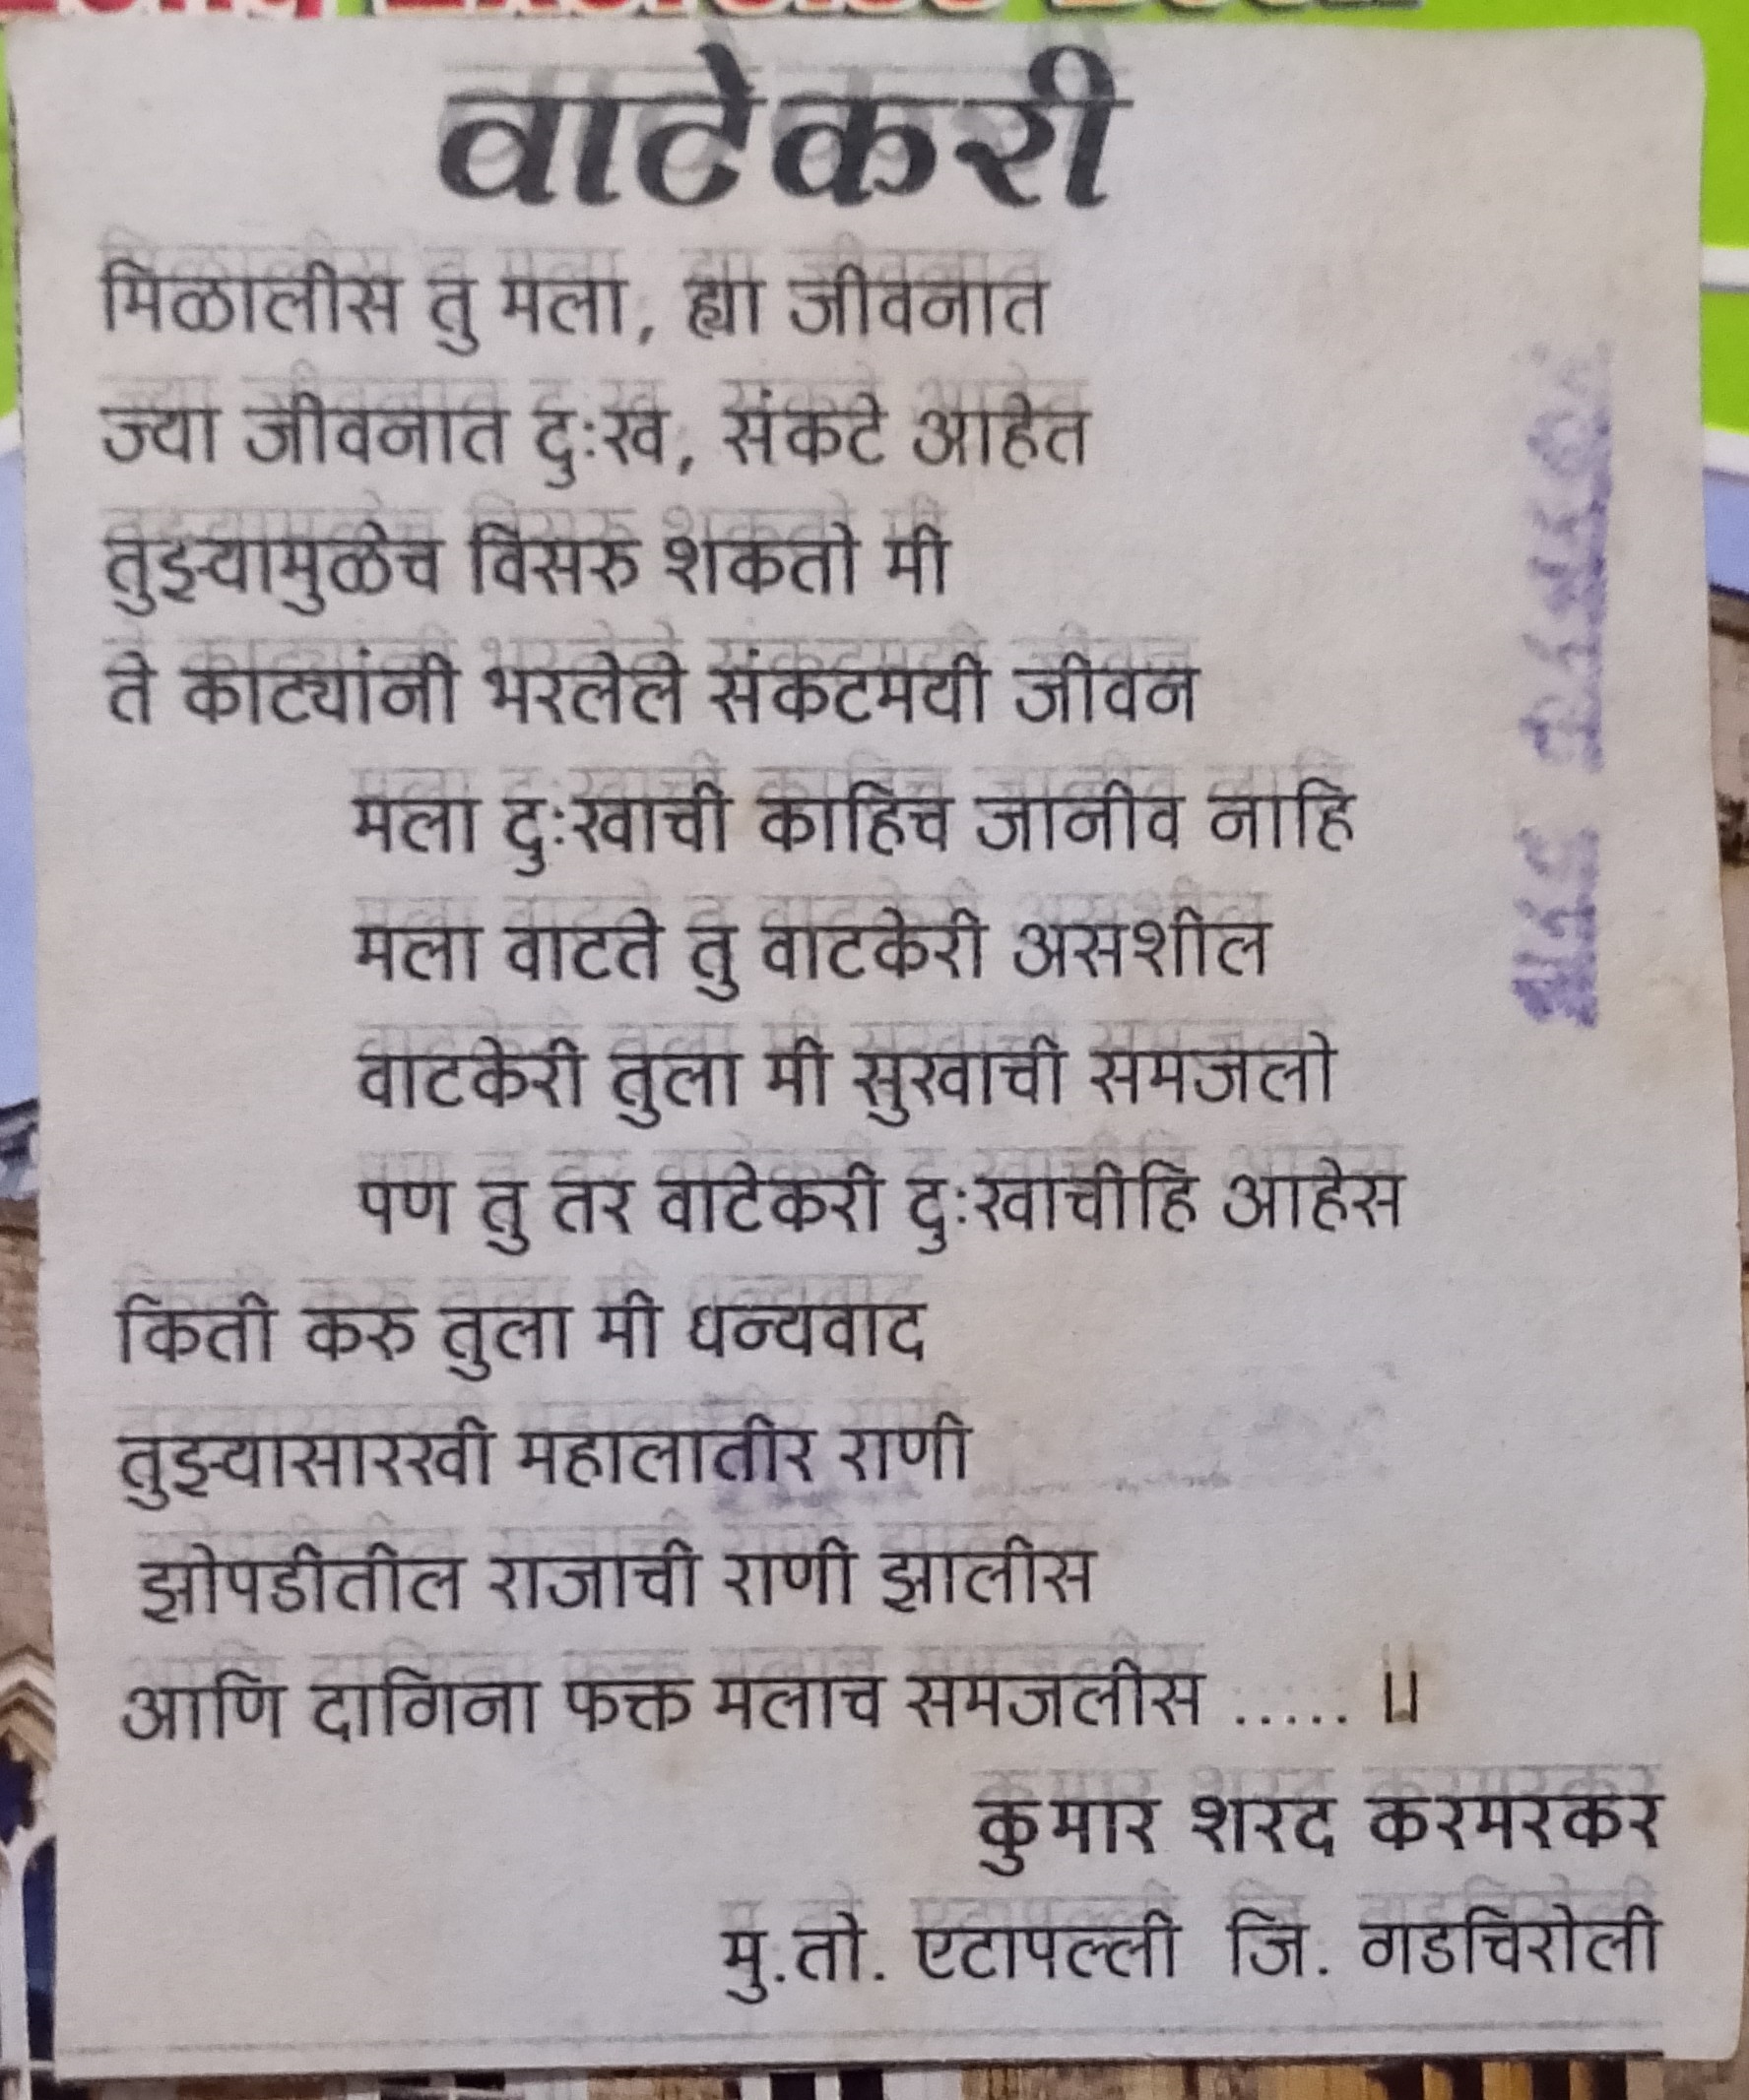 वाटेकरी
मिळालीस तु मला, ह्या जीवनात
ज्या जीवनात दुःख, संकटे आहेत
तुझ्यामुळेच विसरु शकतो मी
ते काट्यांनी भरलेले संकटमयी जीवन
मला दुःखाची काहिच जानीव नाहि
मला वाटते तु वाटकेरी असशील
वाटकेरी तुला मी सुखाची समजलो
पण तु तर वाटेकरी दुःखाचीहि आहेस
किती करु तुला मी धन्यवाद
तुझ्यासारखी महालातीर राणी
झोपडीतील राजाची राणी झालीस
आणि दागिना फक्त मलाच समजलीस ..... ॥
कुमार शरद करमरकर
मु.तो. एटापल्ली जि. गडचिरोली